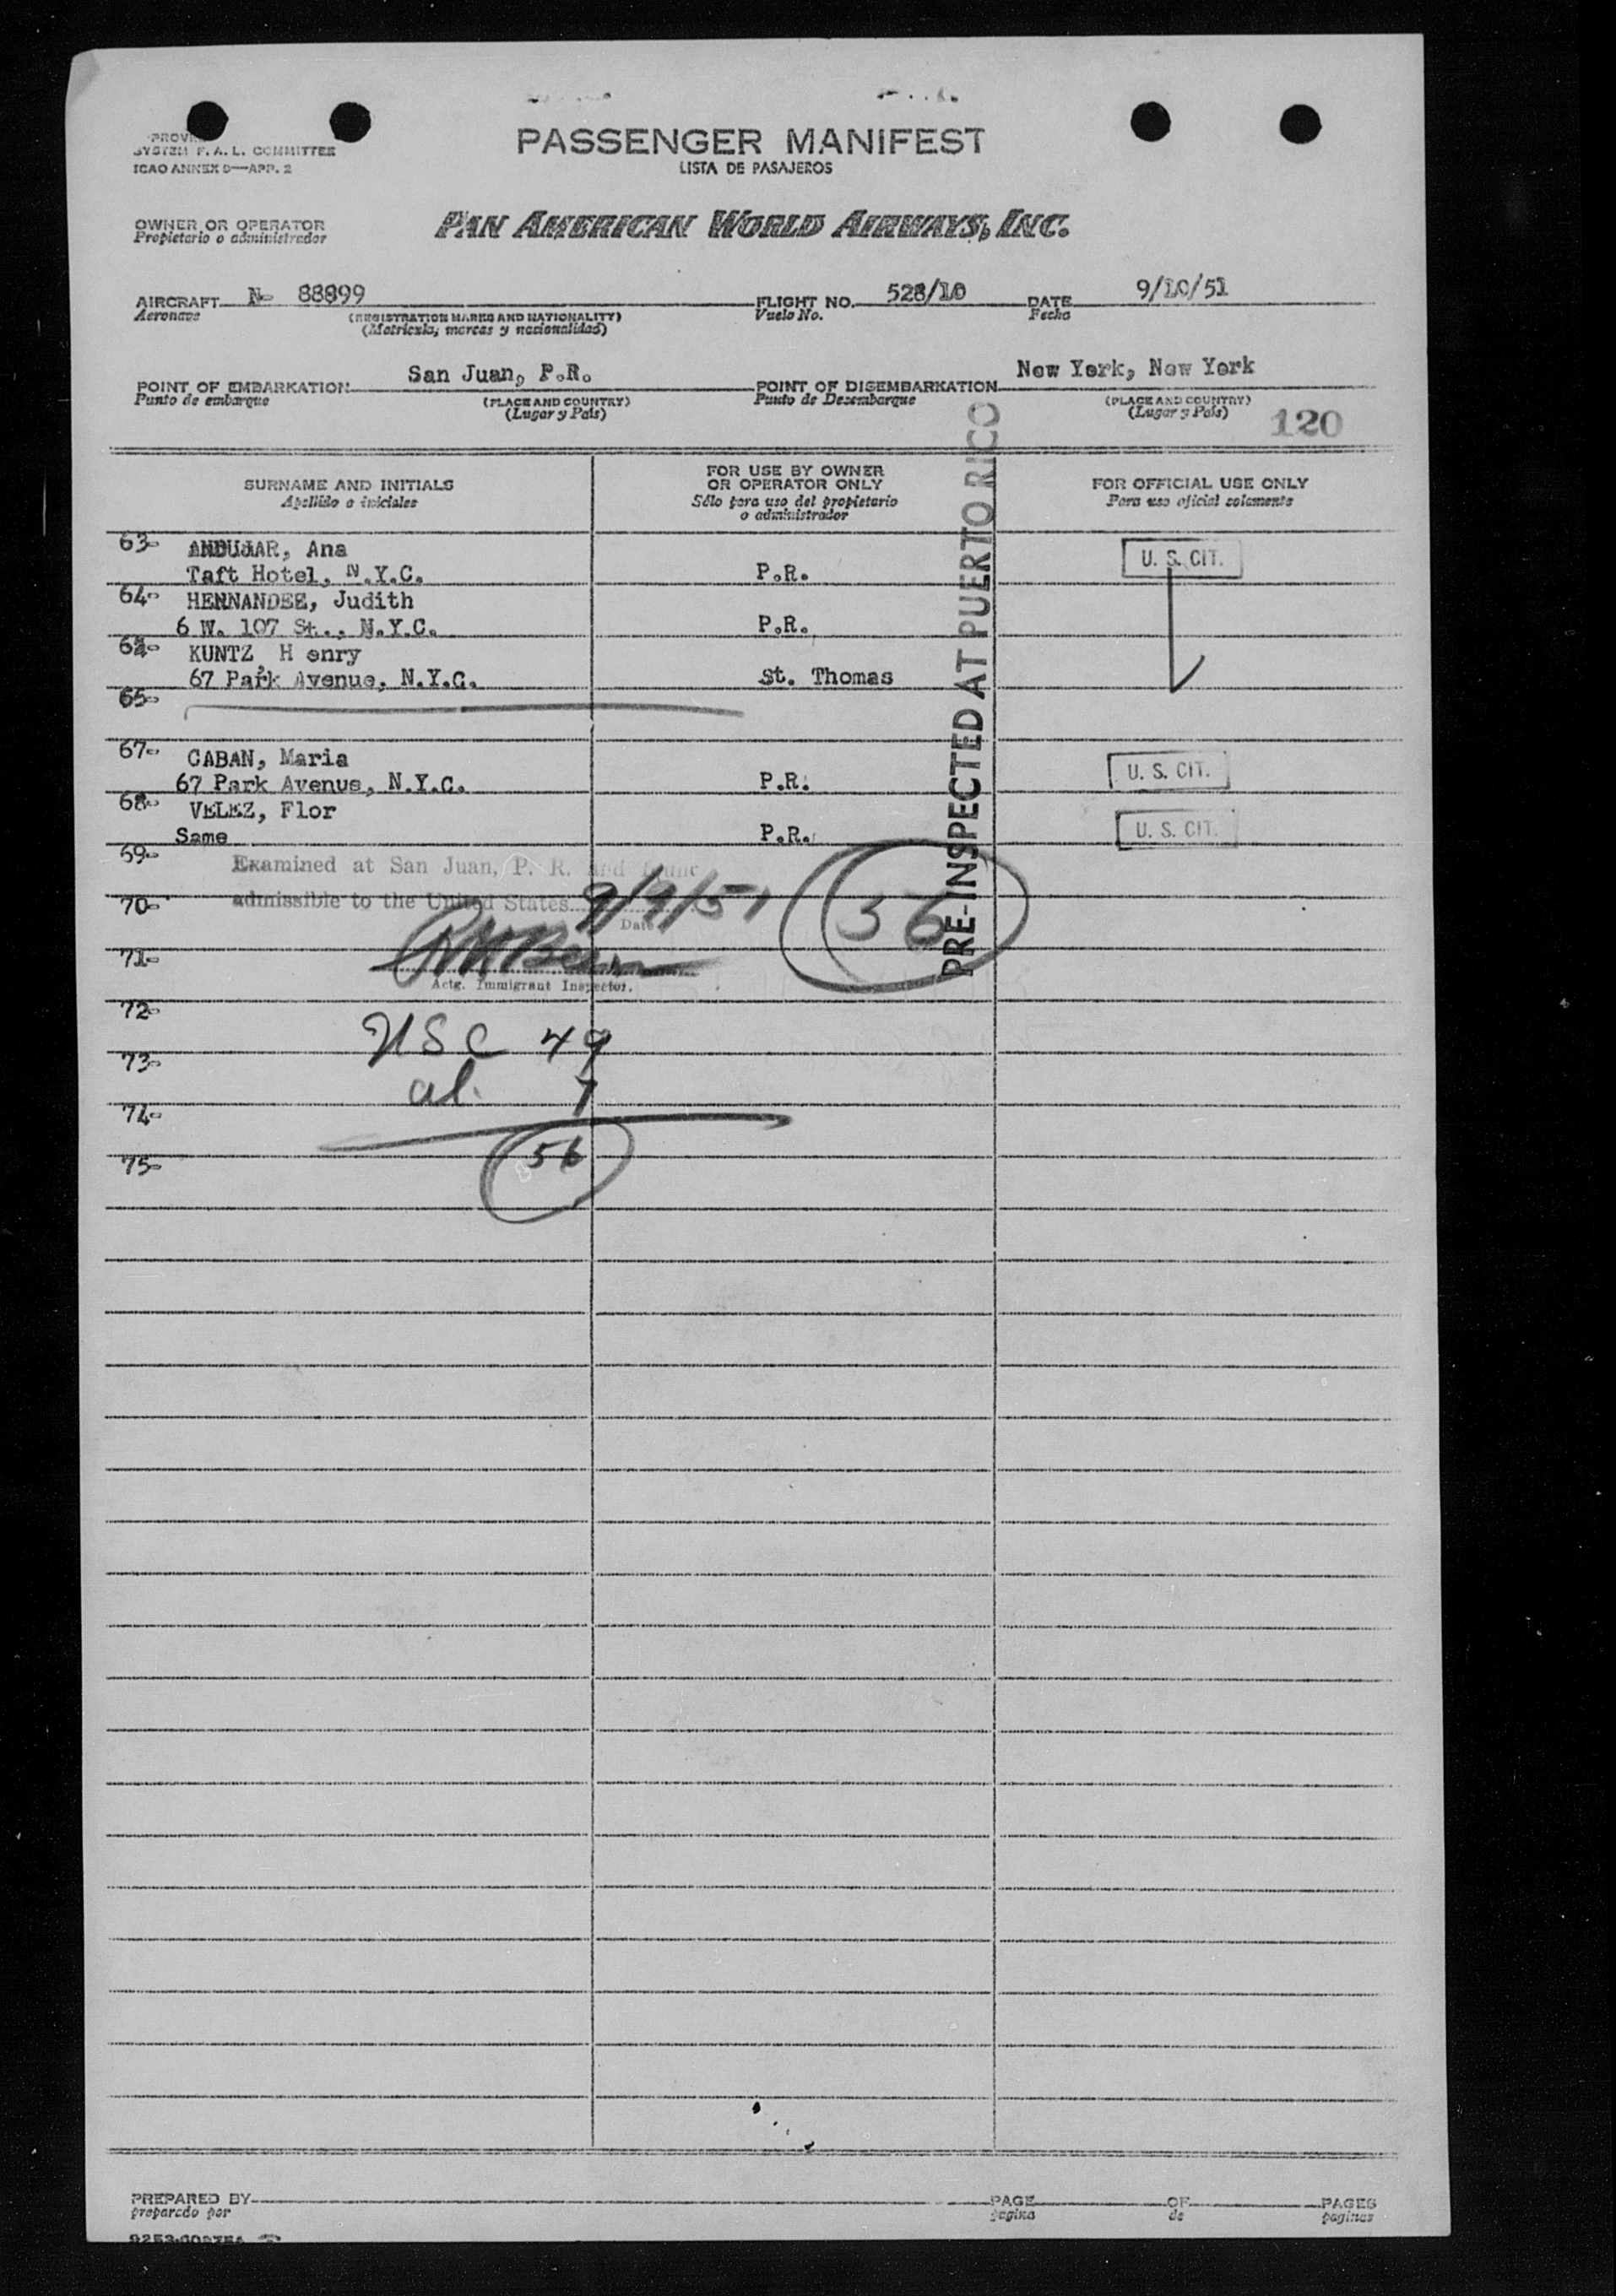 PASSENGER MANIFEST
LISTA DE PASAJEROS
SYSTEM F. A. L. COMMITTEE
ICAO ANNEX 9—APP. 2
OWNER OR OPERATOR
Propietario o administrador
PAN AMERICAN WORLD AIRWAYS, INC.
AIRCRAFT N- 88899 FLIGHT NO. 528/10 DATE 9/10/51
Aeronave (REGISTRATION MARKS AND NATIONALITY) Vuelo No. Fecha
(Matricula, marcas y nacionalidad)
POINT OF EMBARKATION San Juan, P.R. POINT OF DISEMBARKATION New York, New York
Punto de embarque (PLACE AND COUNTRY) Punto de Desembarque (PLACE AND COUNTRY)
(Lugar y País) (Lugar y País) 120
SURNAME AND INITIALS FOR USE BY OWNER OR OPERATOR ONLY FOR OFFICIAL USE ONLY
Apellido e iniciales Sólo para uso del propietario o administrador Para uso oficial solamente
PRE-INSPECTED AT PUERTO RICO
63- ANDUJAR, Ana U. S. CIT.
Taft Hotel, N.Y.C. P.R.
64- HERNANDEZ, Judith
6 W. 107 St., N.Y.C. P.R.
KUNTZ, H enry
67 Park Avenue, N.Y.C. St. Thomas
65-
67- CABAN, Maria U. S. CIT.
67 Park Avenue, N.Y.C. P.R.
68- VELEZ, Flor U. S. CIT.
Same P.R.
69- Examined at San Juan, P. R. and
70- admissible to the United States 9/9/51 56
Date
71-
Actg. Immigrant Inspector.
72-
USC 49
73-
al. 7
74-
56
75-
PREPARED BY PAGE OF PAGES
preparado por pagina de paginas